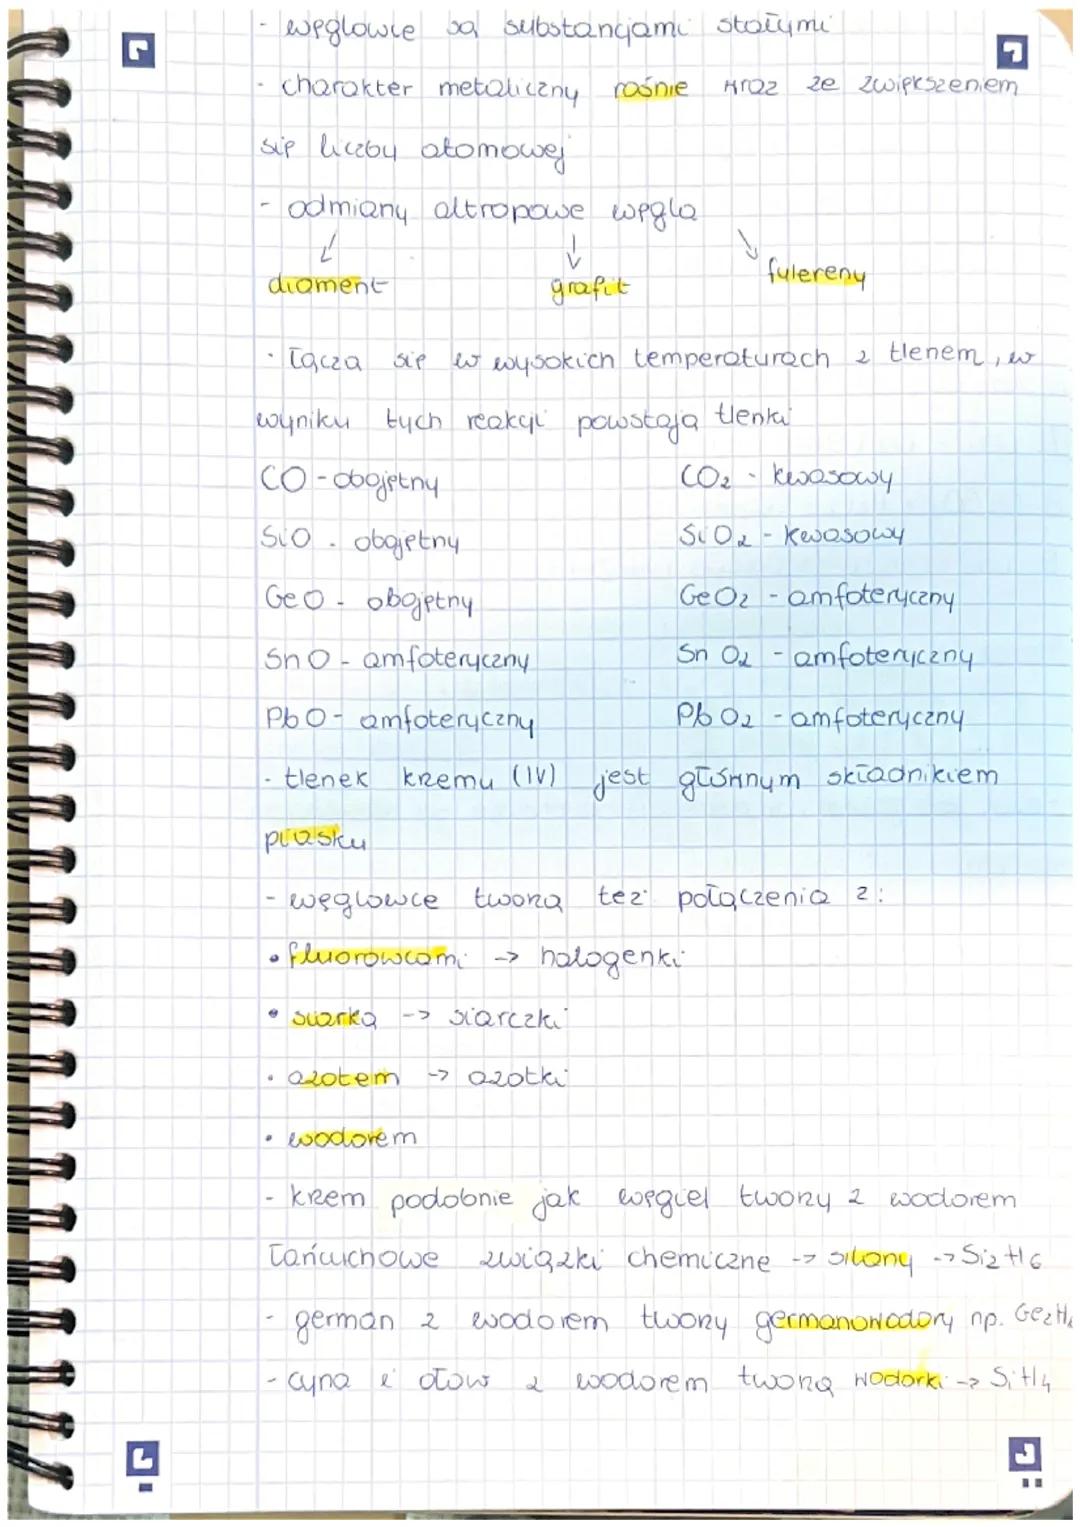 - węglowce są substancjami stałymi
- charakter metaliczny rośnie wraz ze zwiększeniem
się liczby atomowej
- odmiany altropowe węgla
diament grafit fulereny
- łączą się w wysokich temperaturach z tlenem, w
wyniku tych reakcji powstają tlenki
CO - obojętny CO₂ - kwasowy
SiO - obojętny SiO₂ - kwasowy
GeO - obojętny GeO₂ - amfoteryczny
SnO - amfoteryczny SnO₂ - amfoteryczny
PbO - amfoteryczny PbO₂ - amfoteryczny
- tlenek krzemu (IV) jest głównym składnikiem
piasku
- węglowce tworzą też połączenia z:
• fluorowcami -> halogenki
• siarką -> siarczki
• azotem -> azotki
• wodorem
- krzem podobnie jak węgiel tworzy z wodorem
łańcuchowe związki chemiczne -> silany -> Si₂H₆
- german z wodorem tworzy germanowodory np.
- cyna i ołów z wodorem tworzą wodorki -> SiH₄